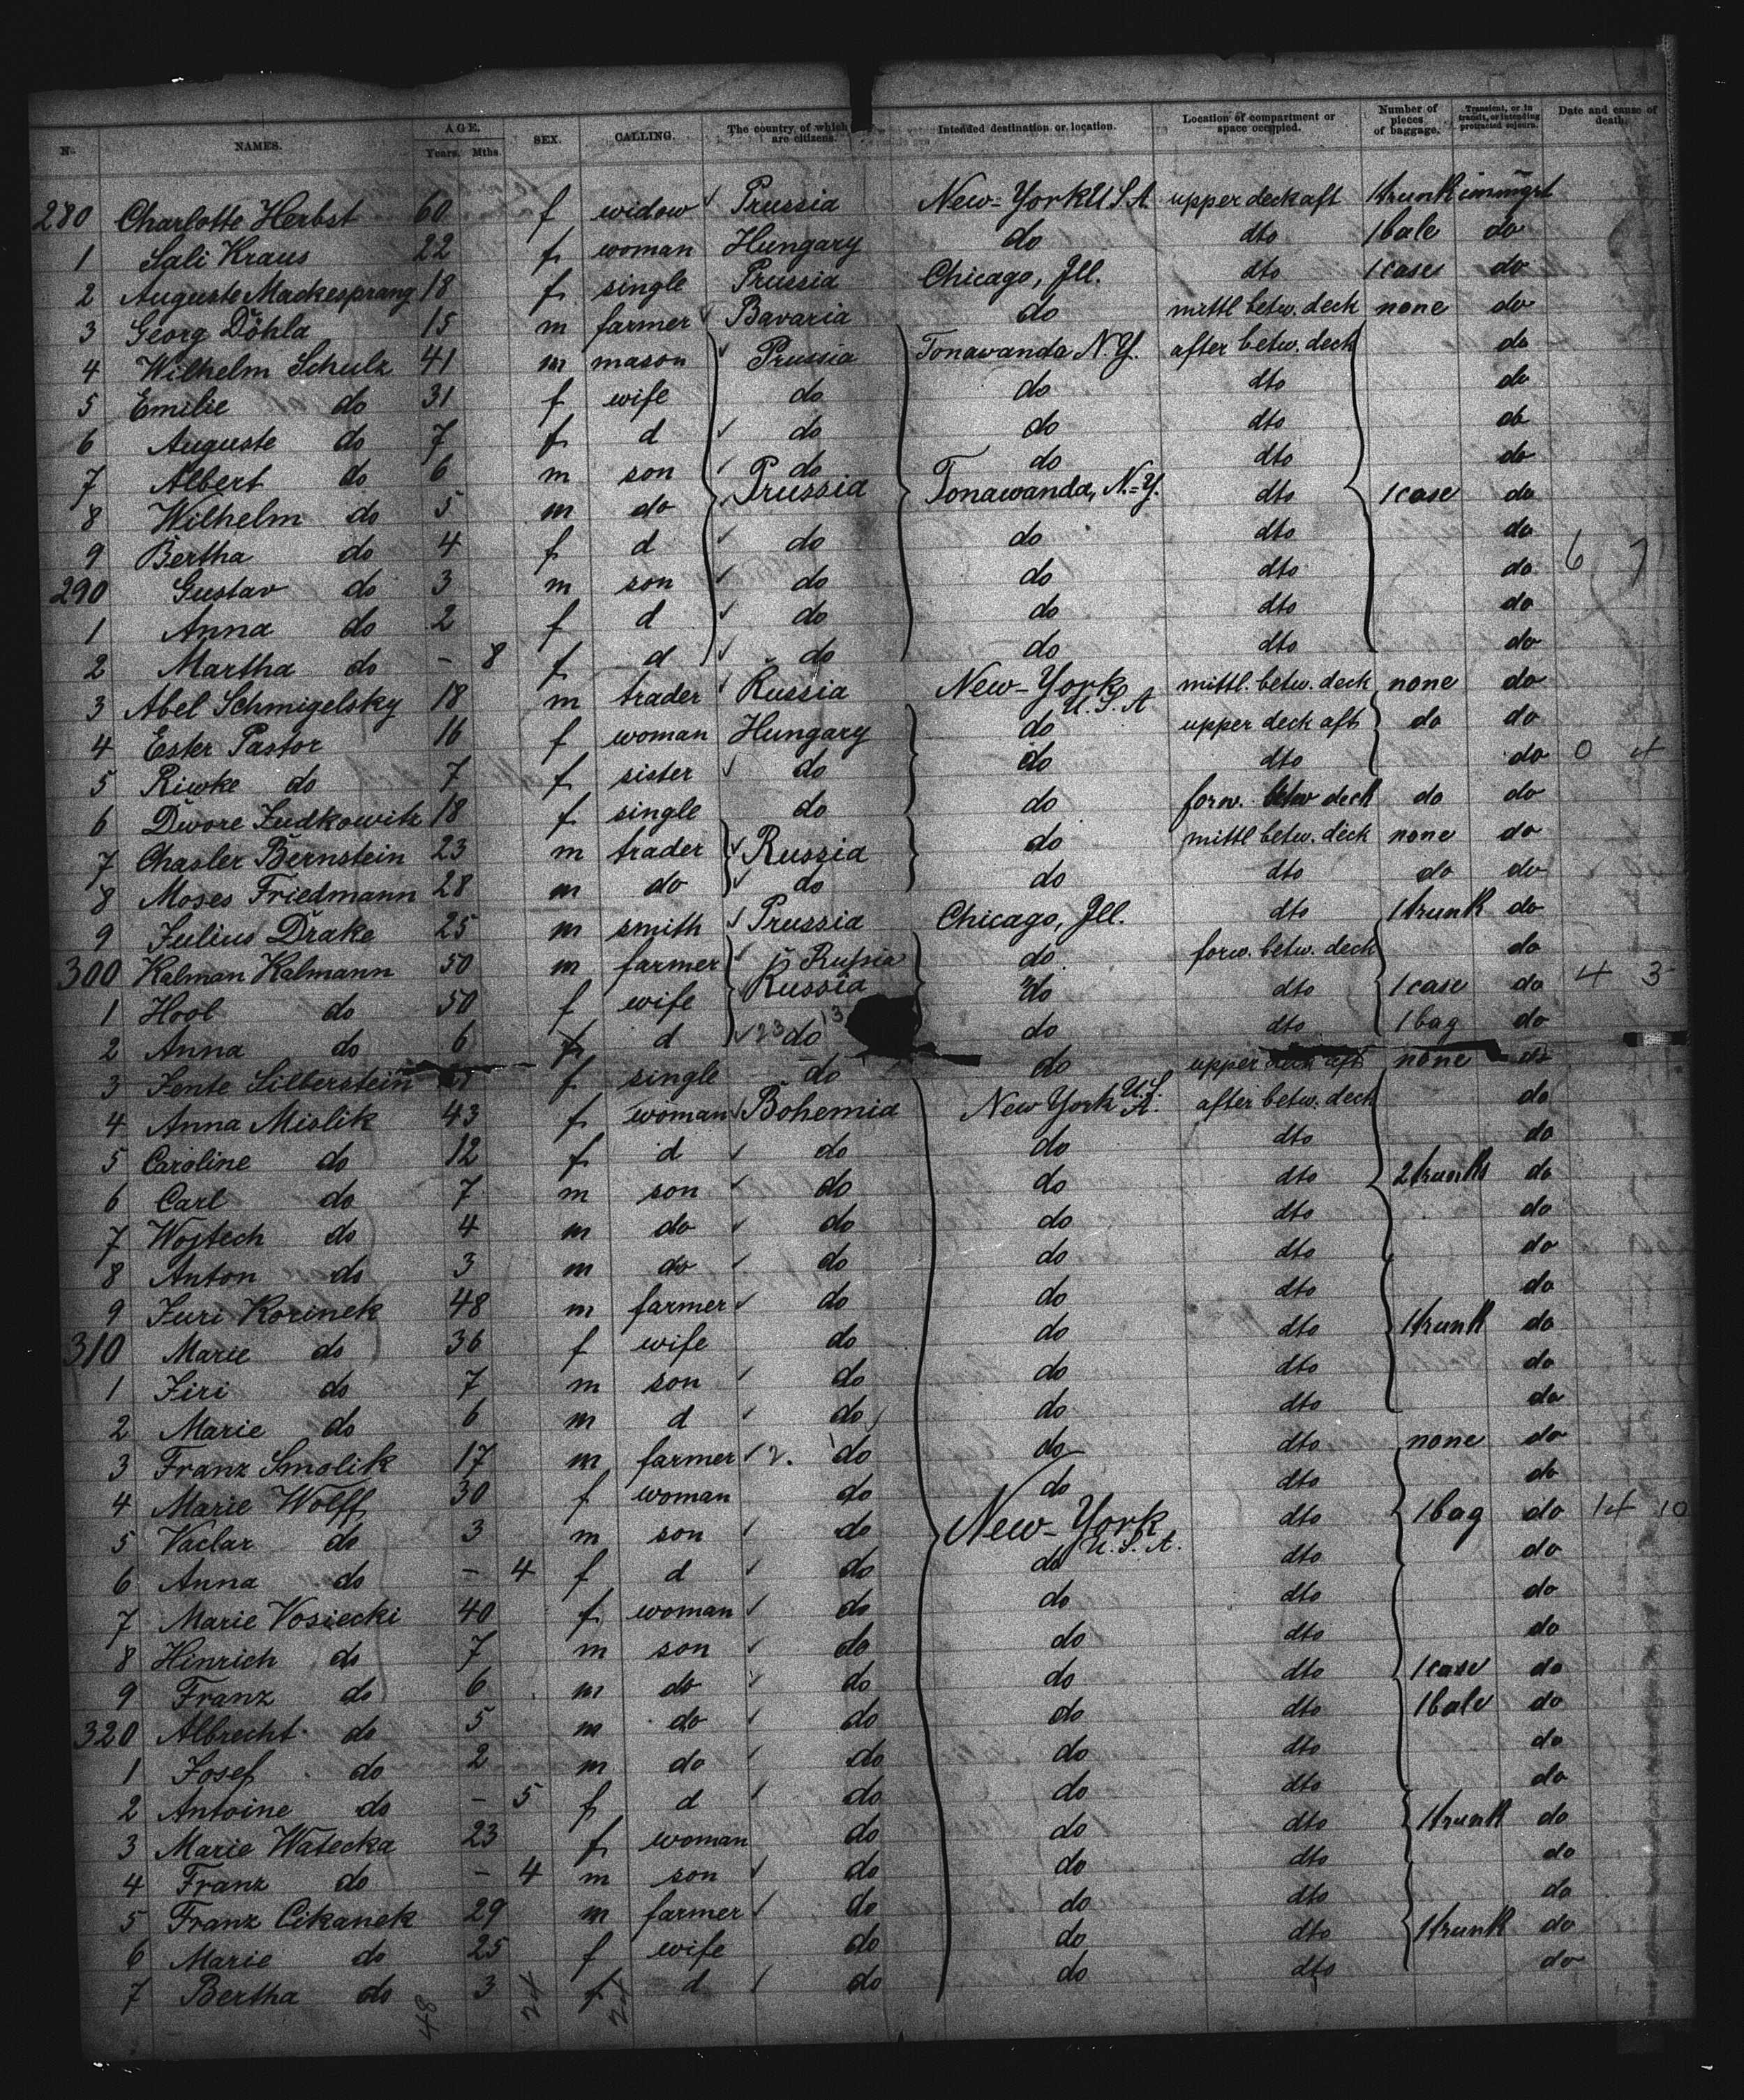 No. NAMES. AGE. Years. Mths. SEX. CALLING. The country of which are citizens. Intended destination or location. Location of compartment or space occupied. Number of pieces of baggage. Transient, or in transit, or intending protracted sojourn. Date and cause of death.
280 Charlotte Herbst 60 f widow Prussia New-York U S A upper deck aft 1 trunk immigrt
1 Sali Kraus 22 f woman Hungary do dto 1 bale do
2 Auguste Mackesprang 18 f single Prussia Chicago, Jll. dto 1 case do
3 Georg Döhla 15 m farmer Bavaria do mittl betw. deck none do
4 Wilhelm Schulz 41 m mason Prussia Tonawanda N.Y. after betw. deck do
5 Emilie do 31 f wife do do dto do
6 Auguste do 7 f d do do dto do
7 Albert do 6 m son do do dto do
8 Wilhelm do 5 m do Prussia Tonawanda, N.=Y. dto 1 case do
9 Bertha do 4 f d do do dto do
290 Gustav do 3 m son do do dto do 6 7
1 Anna do 2 f d do do dto do
2 Martha do - 8 f d do do dto do
3 Abel Schmigelsky 18 m trader Russia New-York U.S.A mittl. betw. deck none do
4 Ester Pastor 16 f woman Hungary do upper deck aft do do
5 Riwke do 7 f sister do do dto do 0 4
6 Dwore Judkowitz 18 f single do do forw. betw deck do do
7 Chasler Bernstein 23 m trader Russia do mittl betw. deck none do
8 Moses Friedmann 28 m do do do dto do do
9 Julius Drake 25 m smith Prussia Chicago, Jll. dto 1 trunk do
300 Kalman Kalmann 50 m farmer Russia do forw. betw. deck do
1 Hool do 50 f wife Russia do dto 1 case do 4 3
2 Anna do 6 f d 23 do 13 do dto 1 bag do
3 Jente Silberstein f single do do upper deck aft none do
4 Anna Mislik 43 f woman Bohemia New York U.S.A. after betw. deck do
5 Caroline do 12 f d do do dto do
6 Carl do 7 m son do do dto 2 trunks do
7 Wojtech do 4 m do do do dto do
8 Anton do 3 m do do do dto do
9 Juri Korinek 48 m farmer do do dto do
310 Marie do 36 f wife do do dto 1 trunk do
1 Jiri do 7 m son do do dto do
2 Marie do 6 m d do do dto do
3 Franz Smolik 17 m farmer 2. do do dto none do
4 Marie Wolff 30 f woman do do dto do
5 Vaclar do 3 m son do New-York U.S.A. dto 1 bag do 14 10
6 Anna do - 4 f d do do dto do
7 Marie Vosiecki 40 f woman do do dto do
8 Hinrich do 7 m son do do dto do
9 Franz do 6 m do do do dto 1 case do
320 Albrecht do 5 m do do do dto 1 bale do
1 Josef do 2 m do do do dto do
2 Antoine do - 5 f d do do dto do
3 Marie Watecka 23 f woman do do dto 1 trunk do
4 Franz do - 4 m son do do dto do
5 Franz Cikanek 29 m farmer do do dto do
6 Marie do 25 f wife do do dto 1 trunk do
7 Bertha do 3 f d do do dto do
48 24 24